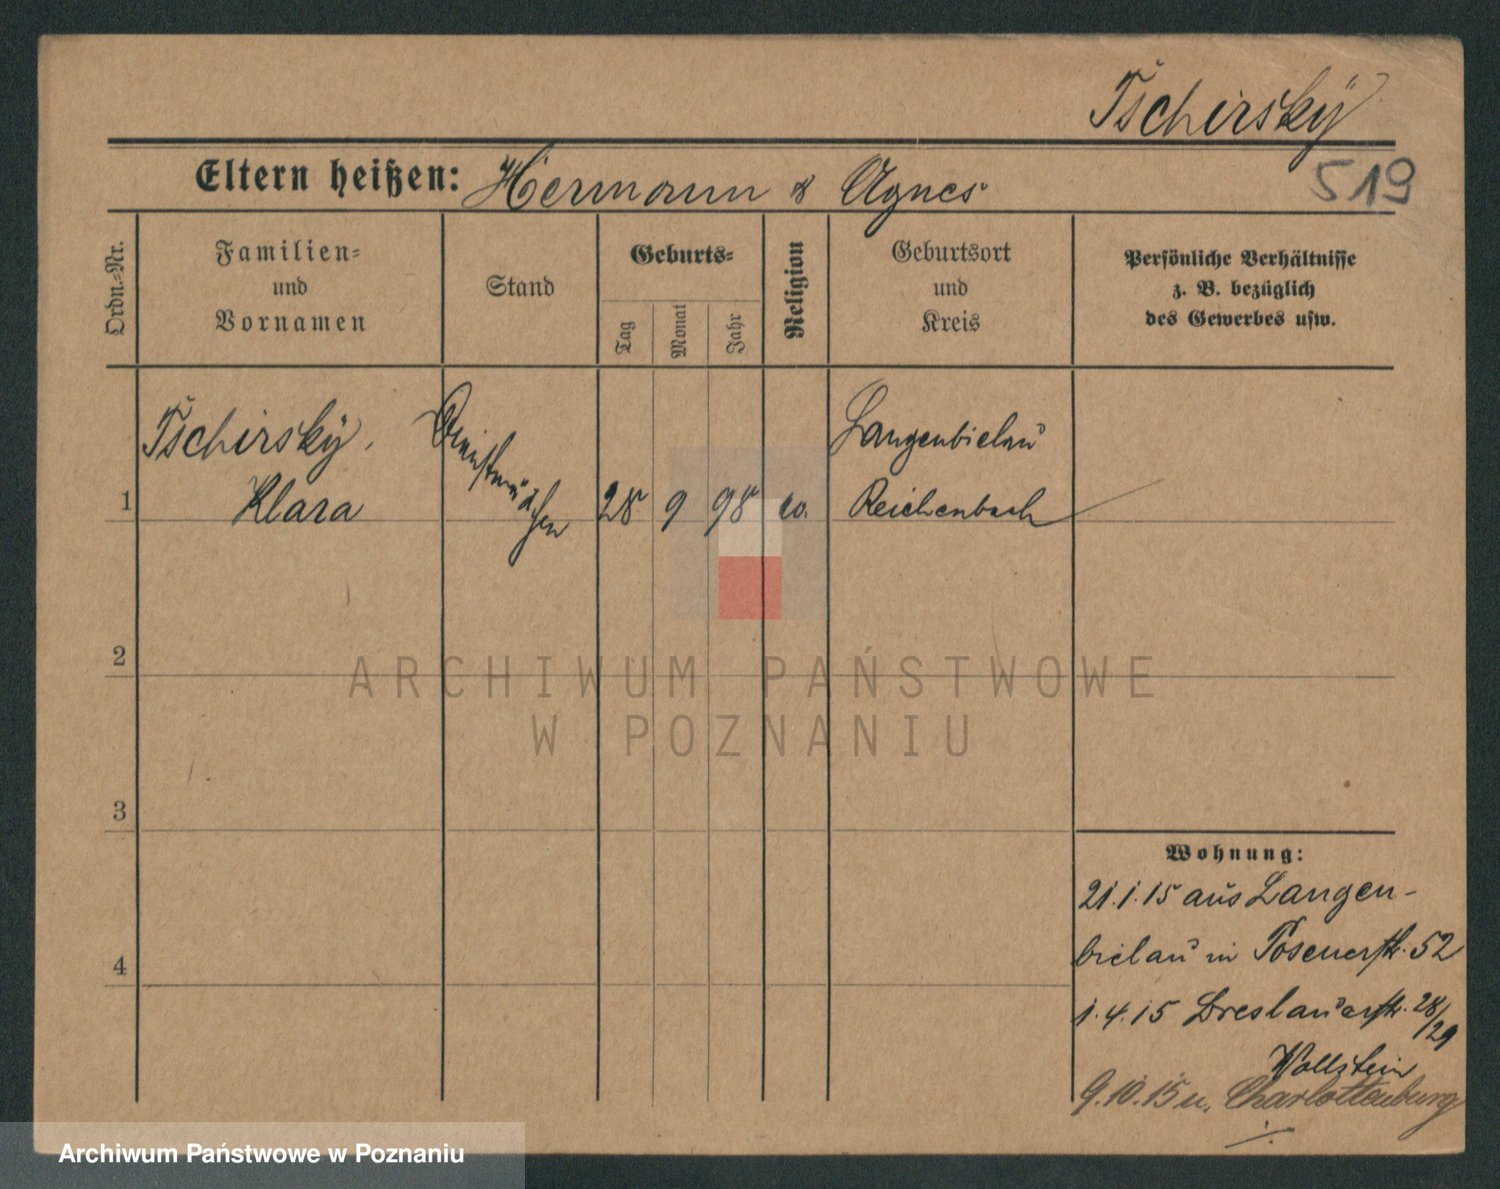 Tschirskÿ
Eltern heißen: Hermann & Agnes
519
Ordn.-Nr.
Familien-
und
Vornamen
Stand
Geburts-
Tag
Monat
Jahr
Religion
Geburtsort
und
Kreis
Persönliche Verhältnisse
z. B. bezüglich
des Gewerbes usw.
1
Tschirskÿ,
Klara
Dienstmädchen
28 9 98 ev.
Langenbielau
Reichenbach
2
3
4
ARCHIWUM PAŃSTWOWE
W POZNANIU
Wohnung:
21.1.15 aus Langen-
bielau in Posenerstr. 52
1.4.15 Breslauerstr. 28/29
Wollstein
9.10.15 n. Charlottenburg
Archiwum Państwowe w Poznaniu